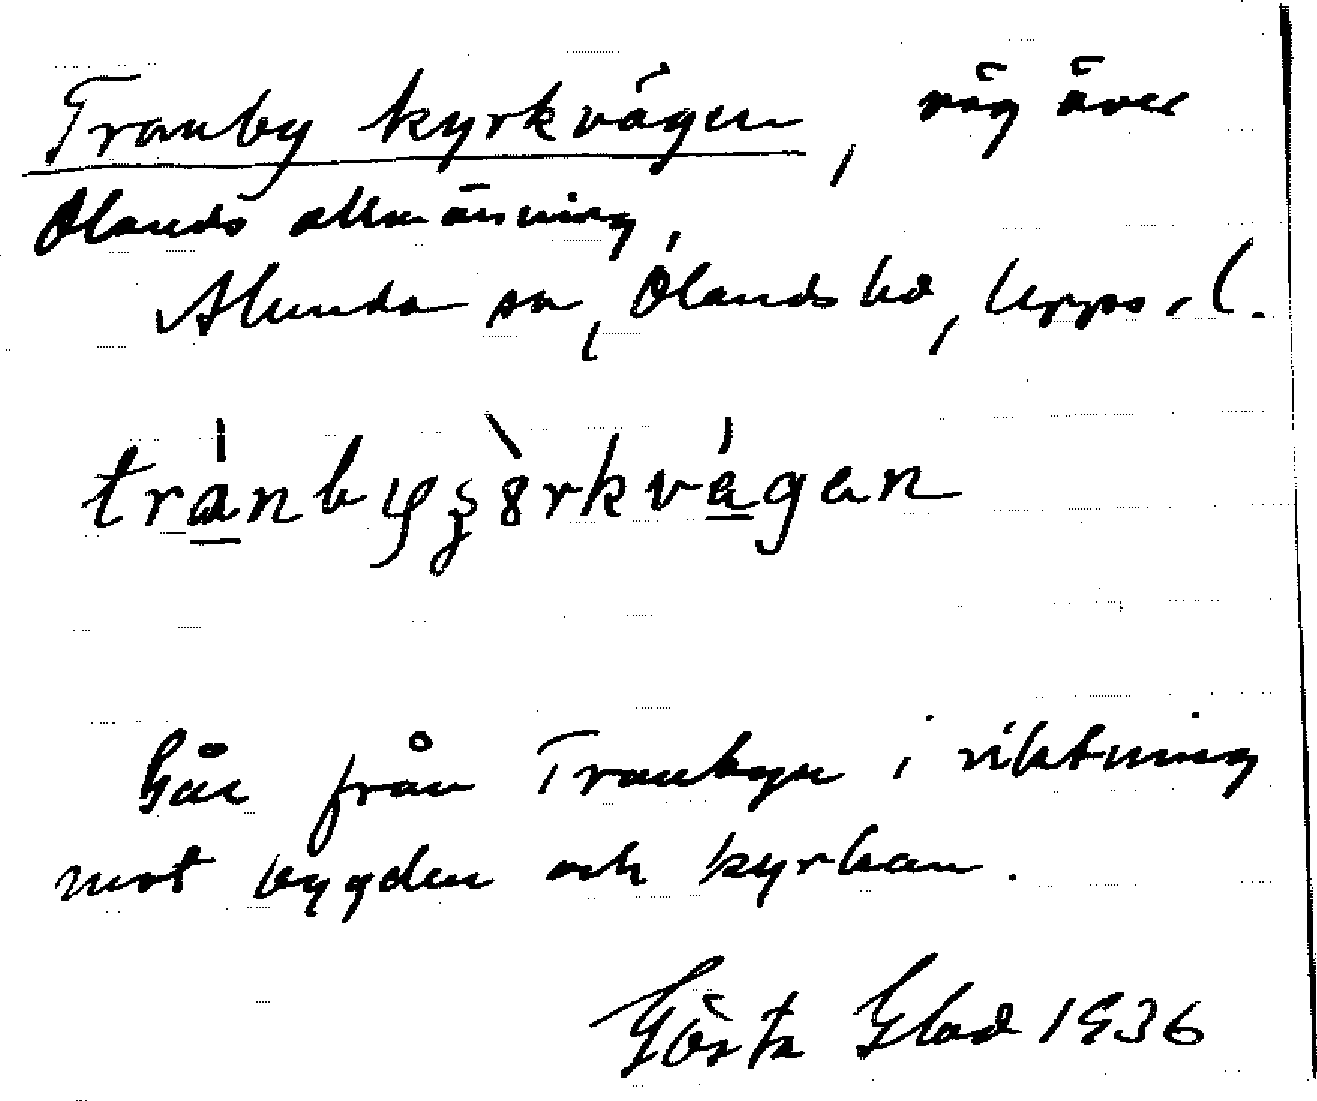 Tranby kyrkvägen, väg över
Ölands allmänning,
Alunda sn, Ölands hd, Upps. l.
Går från Tranbyn i riktning
mot bygden och kyrkan.
Gösta Glad 1936